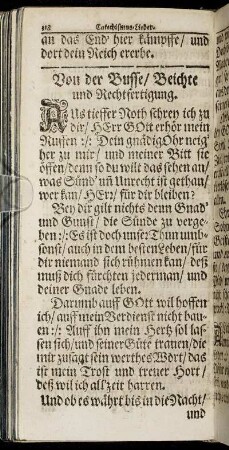 318 Catechismus-Lieder.
an das End' hier kämpffe/ und
dort dein Reich ererbe.
Von der Busse/ Beichte
und Rechtfertigung.
AUs tieffer Noth schrey ich zu
dir/ HErr GOtt erhör mein
Ruffen :/: Dein gnädig Ohr neig'
her zu mir/ und meiner Bitt sie
öffen/ denn so du wilt das sehen an/
was Sünd' uñ Unrecht ist gethan/
wer kan/ HErr/ für dir bleiben?
Bey dir gilt nichts denn Gnad'
und Gunst/ die Sünde zu verge-
ben :/: Es ist doch unser Thun umb-
sonst/ auch in dem besten Leben/ für
dir niemand sich rühmen kan/ deß
muß dich fürchten jederman/ und
deiner Gnade leben.
Darumb auff GOtt wil hoffen
ich/ auff mein Verdienst nicht bau-
en :/: Auff ihn mein Hertz sol las-
sen sich/ und seiner Güte trauen/ die
mir zusagt sein werthes Wort/ das
ist mein Trost und treuer Hort/
deß wil ich all'zeit harren.
Und ob es währt bis in die Nacht/
und